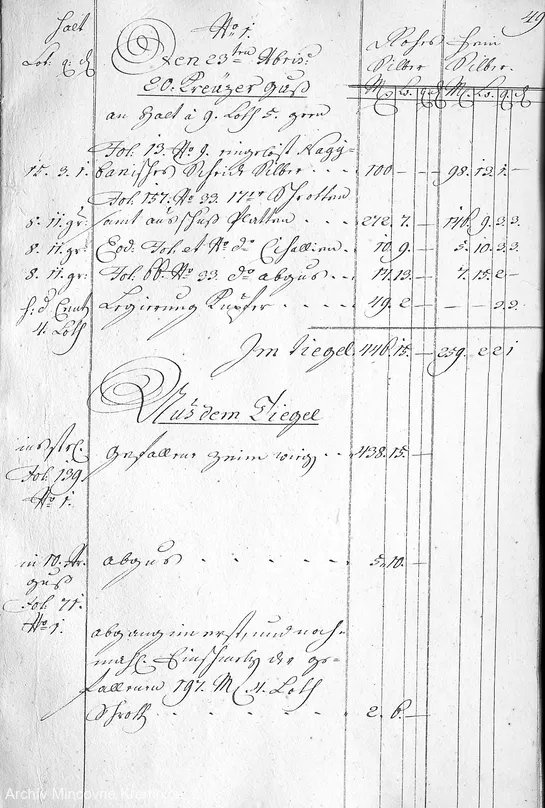 49
halt
Lot. q. d
No. 1.
Den 23ten Abris:
20. Kreüzer Guß
an Halt à 9. Loth 5. gren
Rohes
Silber
fein
Silber.
M. L. q. d
M. L. q. d
Fol. 13. No. 9. eingelößt Nagÿ-
15. 3. 1. banisches Scheid Silber - - - 100 — 98. 12. 1. —
Fol. 157. No. 33. 17er Schrotten
8. 11. gr: samt ausschuß Platten - - - 272. 7. — 146. 9. 3. 3.
8. 11. gr: Eod. Fol. et No. do Cisallien - - 10. 9. — 5. 10. 3. 3.
8. 11. gr: Fol. 66. No. 33. do abgus - - - 14. 13. — 7. 15. 2 —
4. Loth Legierung Kupfer - - - - 49. 2 — — 2. 2.
Im Tiegel 446. 15. — 259. 2 2 1
Aus dem Tiegel
Fol. 139.
No. 1.
gefallene zein wieg - - 438. 15. —
in 10. Kr.
guß
Fol. 71.
No. 1.
abgus - - - - - 5. 10. —
abgang im erst, und noch-
mahl. Einschmelz der ge-
fallenen 197. M. 4. Loth
Schrott - - - - - - 2. 6. —
Archív Mincovne Kremnica